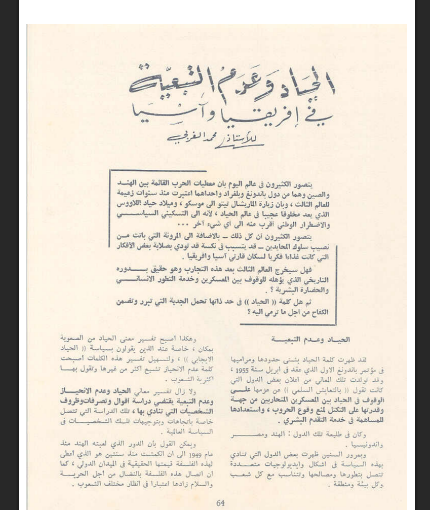 الحياد وعدم التبعية
في إفريقيا وآسيا
للأستاذ: محمد العربي
يتصور الكثيرون في عالم اليوم بأن معطيات الحرب القائمة بين الهند
والصين وهما من دول باندونغ وبلغراد واحداهما اعتبرت منذ سنوات زعيمة
للعالم الثالث ، وبأن زيارة الماريشال تيتو الى موسكو ، وميلاد حياد اللاووس
الذي يعد مخلوقا عجيبا في عالم الحياد ، لانه الى التسكيني السياسي
والاضطرار الوطني اقرب منه الى شيء آخر ...
يتصور الكثيرون ان كل ذلك ـ بالاضافة الى المرونة التي باتت من
نصيب سلوك المحايدين ـ قد يتسبب في نكسة قد تودي بصلابة بعض الافكار
التي كانت غذاءا فكريا لسكان قارتي آسيا وافريقيا .
فهل سيخرج العالم الثالث بعد هذه التجارب وهو حقيق بدوره
التاريخي الذي يؤهله للوقوف بين المعسكرين وخدمة التطور الانساني
والحضارة البشرية ؟ .
ثم هل كلمة (( الحياد )) في حد ذاتها تحمل الجدية التي تبرر وتضمن
الكفاح من اجل ما ترمي اليه ؟
الحياد وعدم التبعية
لقد ظهرت كلمة الحياد بشتى حدودها ومراميها
في مؤتمر باندونغ الاول الذي عقد في ابريل سنة 1955 ،
وقد تولدت تلك المعاني من اعلان بعض الدول التي
كانت تقول (( بالتعايش السلمي )) من عزمها على
الوقوف في الحياد بين المعسكرين المتحاربين من جهة
وقدرتها على التكتل لمنع وقوع الحروب ، واستعدادها
للمساهمة في خدمة التقدم البشري .
وكان في طليعة تلك الدول : الهند ومصر
والدونيسيا .
وبمرور السنين ظهرت بعض الدول التي تنادي
بهذه السياسة في اشكال وايديولوجيات متعددة
تتصل بتطورها ومصالحها وتتناسب مع كل شعب
وكل بيئة ومنطقة .
وهكذا أصبح تفسير معنى الحياد من الصعوبة
بمكان ، خاصة عند الذين يقولون بسياسة (( الحياد
الايجابي )) ، ولتسهيل تفسير هذه الكلمات أصبحت
كلمة عدم الانحياز تشيع أكثر من غيرها وتقول بها
أكثرية الشعوب .
ولا زال تفسير معاني الحياد وعدم الانحياز
وعدم التبعية يقتضي دراسة أقوال وتصرفات وظروف
الشخصيات التي تنادي بها ، تلك الدراسة التي تتصل
خاصة باتجاهات وتوجيهات تلك الشخصيات في
السياسة العالمية .
ويمكن القول بأن الدور الذي لعبته الهند منذ
عام 1949 الى ان انكمشت منذ سنتين هو الذي أعطى
لهذه الفلسفة قيمتها الحقيقية في الميدان الدولي ، كما
ان اتصال هذه الفلسفة بالنضال من أجل الحرية
والسلام زادها اعتبارا في أنظار مختلف الشعوب .
64